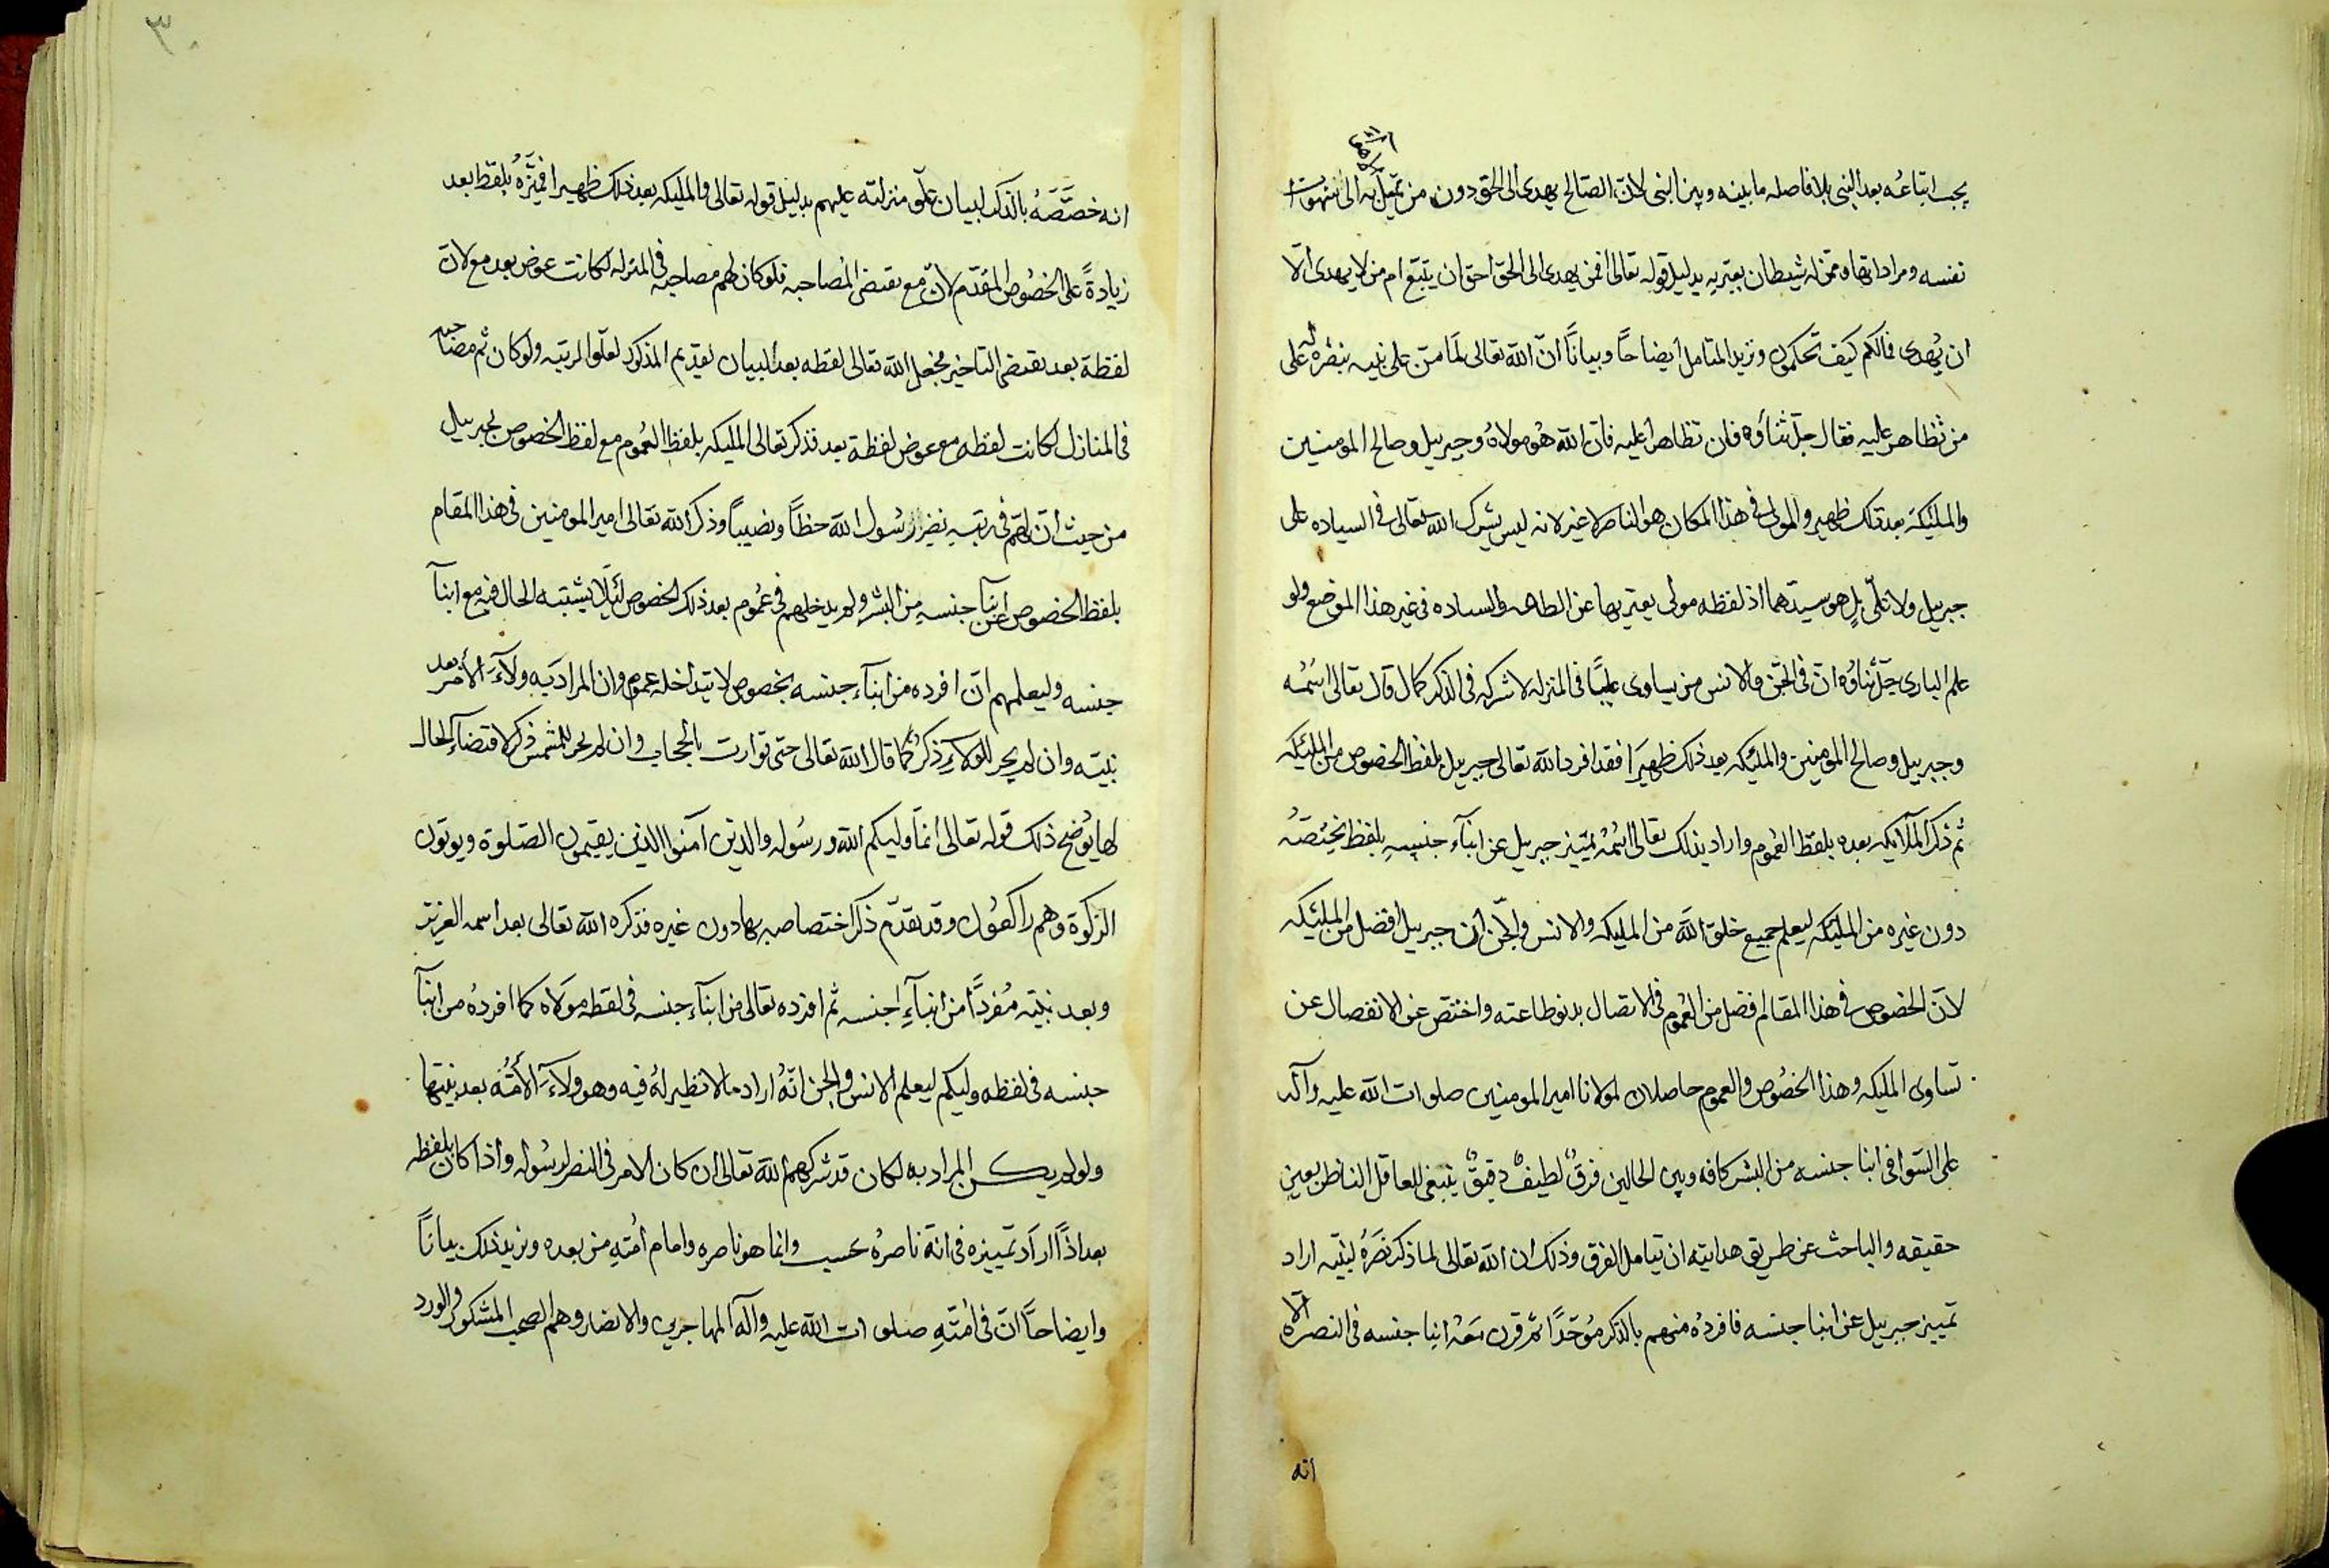 يجب اتباعه بعد النبى بلا فاصله ما بينه وبين النبى لانّ الصالح يهدى الى الحق دون من تميل به الى شهوات
نفسه ومراداتها وممن له شيطان يعتريه بدليل قوله تعالى افمن يهدى الى الحق احق ان يتبع ام من لا يهدى الّا
ان يُهدى فما لكم كيف تحكمون ونزيد المتامل ايضاحاً وبياناً انّ الله تعالى لما منّ على نبيه بنصره له على
من تظاهر عليه فقال جلّ ثناؤه فان تظاهرا عليه فانّ الله هُو مولاهُ وجبريل وصالح المومنين
والمليكة بعد ذلك ظهير والمولى فى هذا المكان هو الناصر لا غير لانه ليس يشرك الله تعالى فى السياده على
جبريل ولا على بل هو سيدهما اذ لفظه مولى يعتبر بها عن الطاعه والسياده فى غير هذا الموضع ولو
علم البارى جلّ ثناؤه انّ فى الجّن والانس من يساوى عليّاً فى المنزله لاشركه فى الذكر كما قال تعالى اسمُه
وجبرييل وصالح المومنين والمليكه بعد ذلك ظهيرَا فقد افرد الله تعالى جبرييل بلفظ الخصوص من المليكه
ثم ذكر الملآيكه بعده بلفظ العُموم واراد بذلك تعالى اسمُه تمييز جبرييل عن ابنآء جنسِهِ بلفظ يخصّهُ
دون غيره من المليكه ليعلم جميع خلق الله من المليكه والانس والجّن ان جبرييل افضل من المليكه
لانّ الخصوص فى هذا المقام افضل من العُموم فى الاتصال بدنو طاعته واختصّ عن الانفصال عن
تساوى المليكه وهذا الخصُوص والعموم حاصلان لمولانا امير المومنين صلوات الله عليه وآله
على السّوا فى ابنا جنسه من البشر كافه وبين الحالين فرقٌ لطيفٌ دقيقٌ ينبغى للعاقل الناظر بعين
حقيقه والباحث عن طريق هدايته ان يتامل الفرق وذلك ان الله تعالى لما ذكر نصَرهُ لنبيّه اراد
تمييز جبرييل عن ابنا جنسه فافردُه منهم بالذكر مُوحّدًا ثم قرن معه ابنا جنسه فى النصره الّا
انه
انه خصّصَهُ بالذكر لبيان علّو منزلته عليهم بدليل قوله تعالى والمليكه بعد ذلك ظهيرا فميّزَهُ بلفظ بعد
زيادةً على الخصُوص المقدّم لانّ مع تقتضى المُصاحبه فلو كان لهم مصاحبه فى المنزله لكانت عوض بعد مع لانّ
لفظة بعد تقتضى التاخير فجعل الله تعالى لفظه بعد لبيان تقديم المذكور لعلّو الرتبه ولو كان ثم مصاحبه
فى المنازل لكانت لفظه مع عوض لفظة بعد فذكر تعالى المليكه بلفظ العُموم مع لفظ الخصوص لجبرييل
من حيث انّ لهم فى رتبه نصر رسُول الله حظّاً ونصيباً وذكر الله تعالى امير المومنين فى هذا المقام
بلفظ الخصوص عن ابنآ جنسهِ من البشر ولم يدخلهم فى عمُوم بعد ذلك الخصوص لئلّا يشتبه الحال فيه مع ابنآ
جنسه وليعلمهم انّ افرده من ابنآء جنسه بخصوص لا يتداخله عموم وان المراد به ولآءَ الأمر بعد
نبيّه وان لم يجر للولاء ذكرٌ كما قال الله تعالى حتى توارت بالحجاب وان لم يجر للشمس ذكر لاقتضآء الحال
لها يُوضح ذلك قوله تعالى انما وليكم الله ورسُوله والذين آمنوا الذين يقيمون الصلوة ويوتون
الزكوة وهم راكعُون وقد تقدّم ذكر اختصاصه بها دون غيره فذكره الله تعالى بعد اسمه العزيز
وبعد نبيّه مُفردًا من ابنآءِ جنسه ثم افرده تعالى من ابنآء جنسه فى لفظه مولاه كما افردُه من ابنآ
جنسه فى لفظه وليكم ليعلم الانس والجن انّهُ اراد ما لا نظير لهُ فيه وهو ولآءَ الأمّه بعد نبيّها
ولو لم يكن المراد به لكان قد شركهم الله تعالى ان كان الامر فى النصر لرسُوله واذا كان بلفظه
بعد اذاً اراد تمييزه فى انّه ناصرُه حسب وانما هو ناصره وامام اُمّتهِ من بعده ونزيد ذلك بياناً
وايضاحاً انّ فى اُمّتهِ صلوات الله عليه وآله المهاجرين والانصار وهم الصحب المشكور والورد